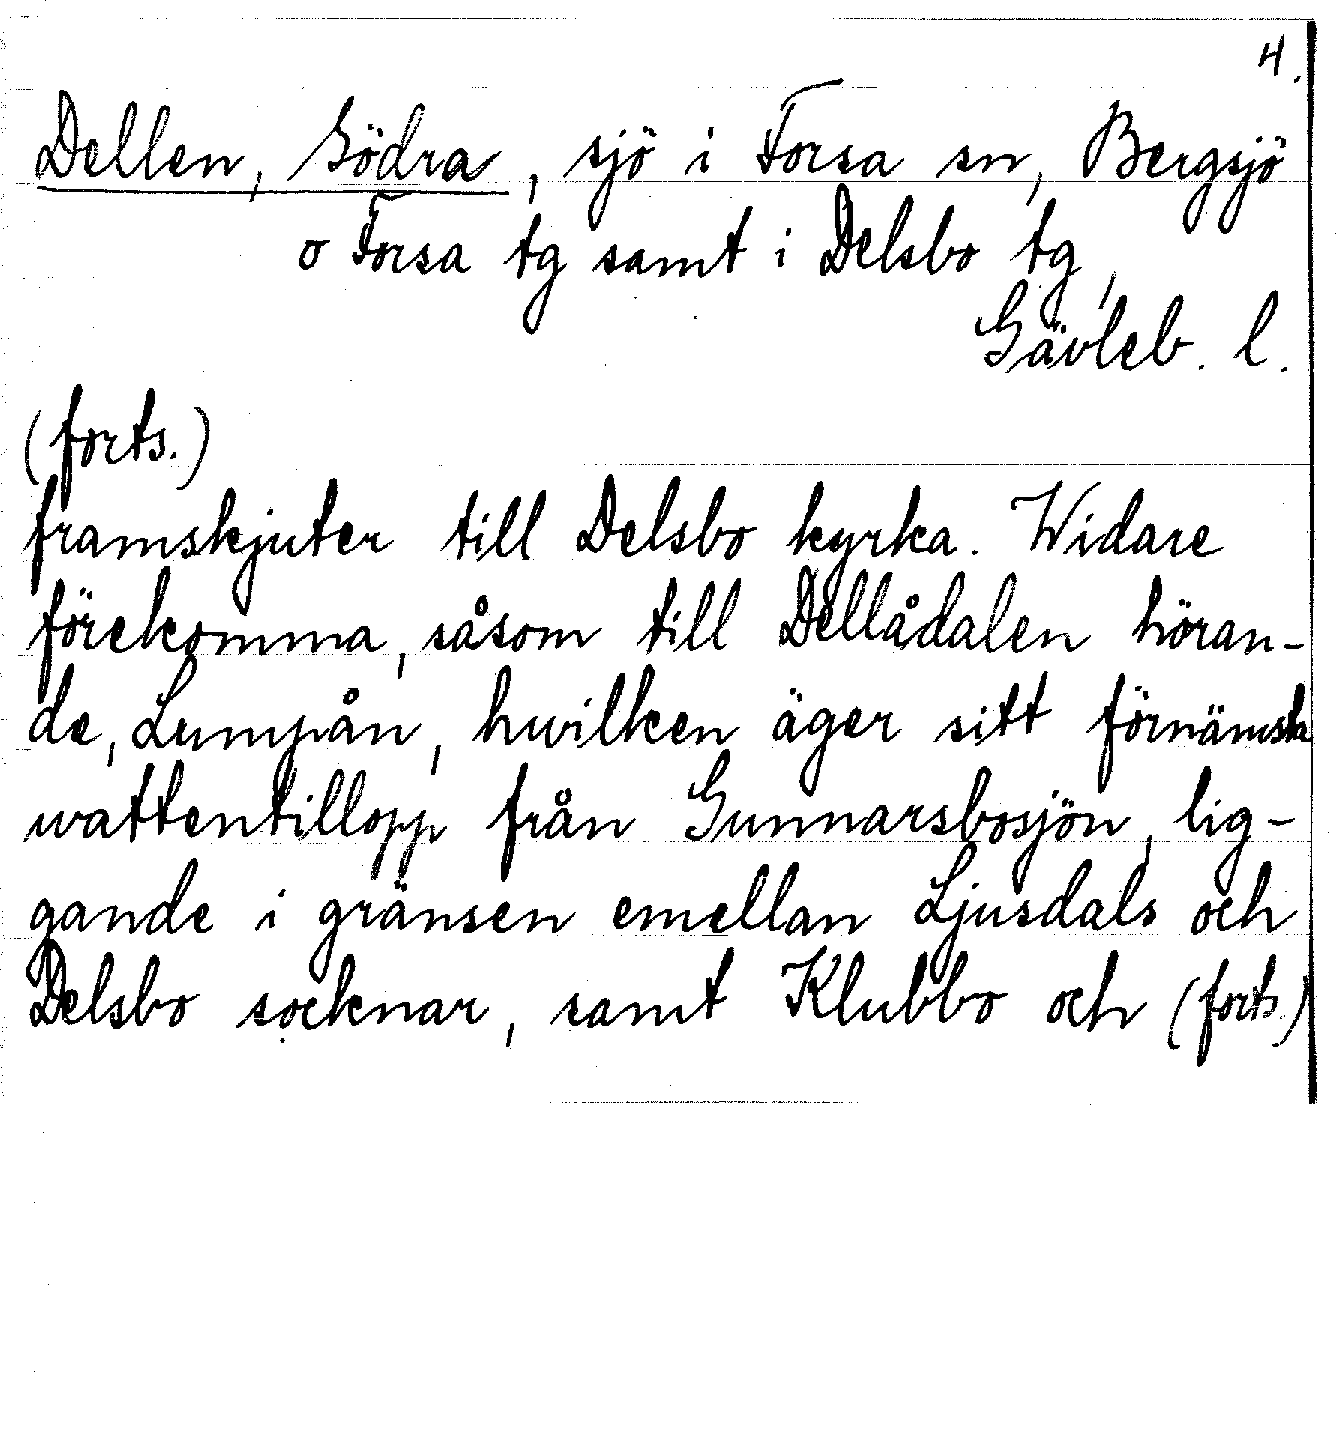 4.
Dellen, Södra, sjö i Forsa sn, Bergsjö
o Forsa tg samt i Delsbo tg,
Gävleb. l.
(forts.)
framskjuter till Delsbo kyrka. Widare
förekomma, såsom till Dellådalen höran-
de, Lumpån, hwilken äger sitt förnämsta
wattentillopp från Gunnarsbosjön, lig-
gande i gränsen emellan Ljusdals och
Delsbo socknar, samt Klubbo och (forts.)